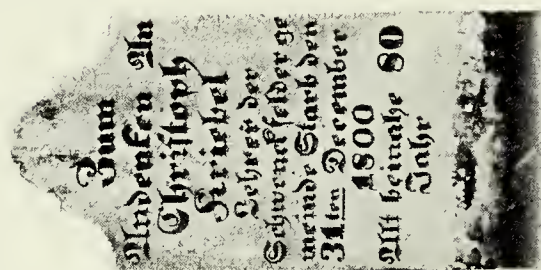 Zum
Andenken An
Christoph
Kriebel
Lehrer der
Schwenkfelder ge
meinde Starb den
31ten December
1800
Alt beinahe 80
Jahr